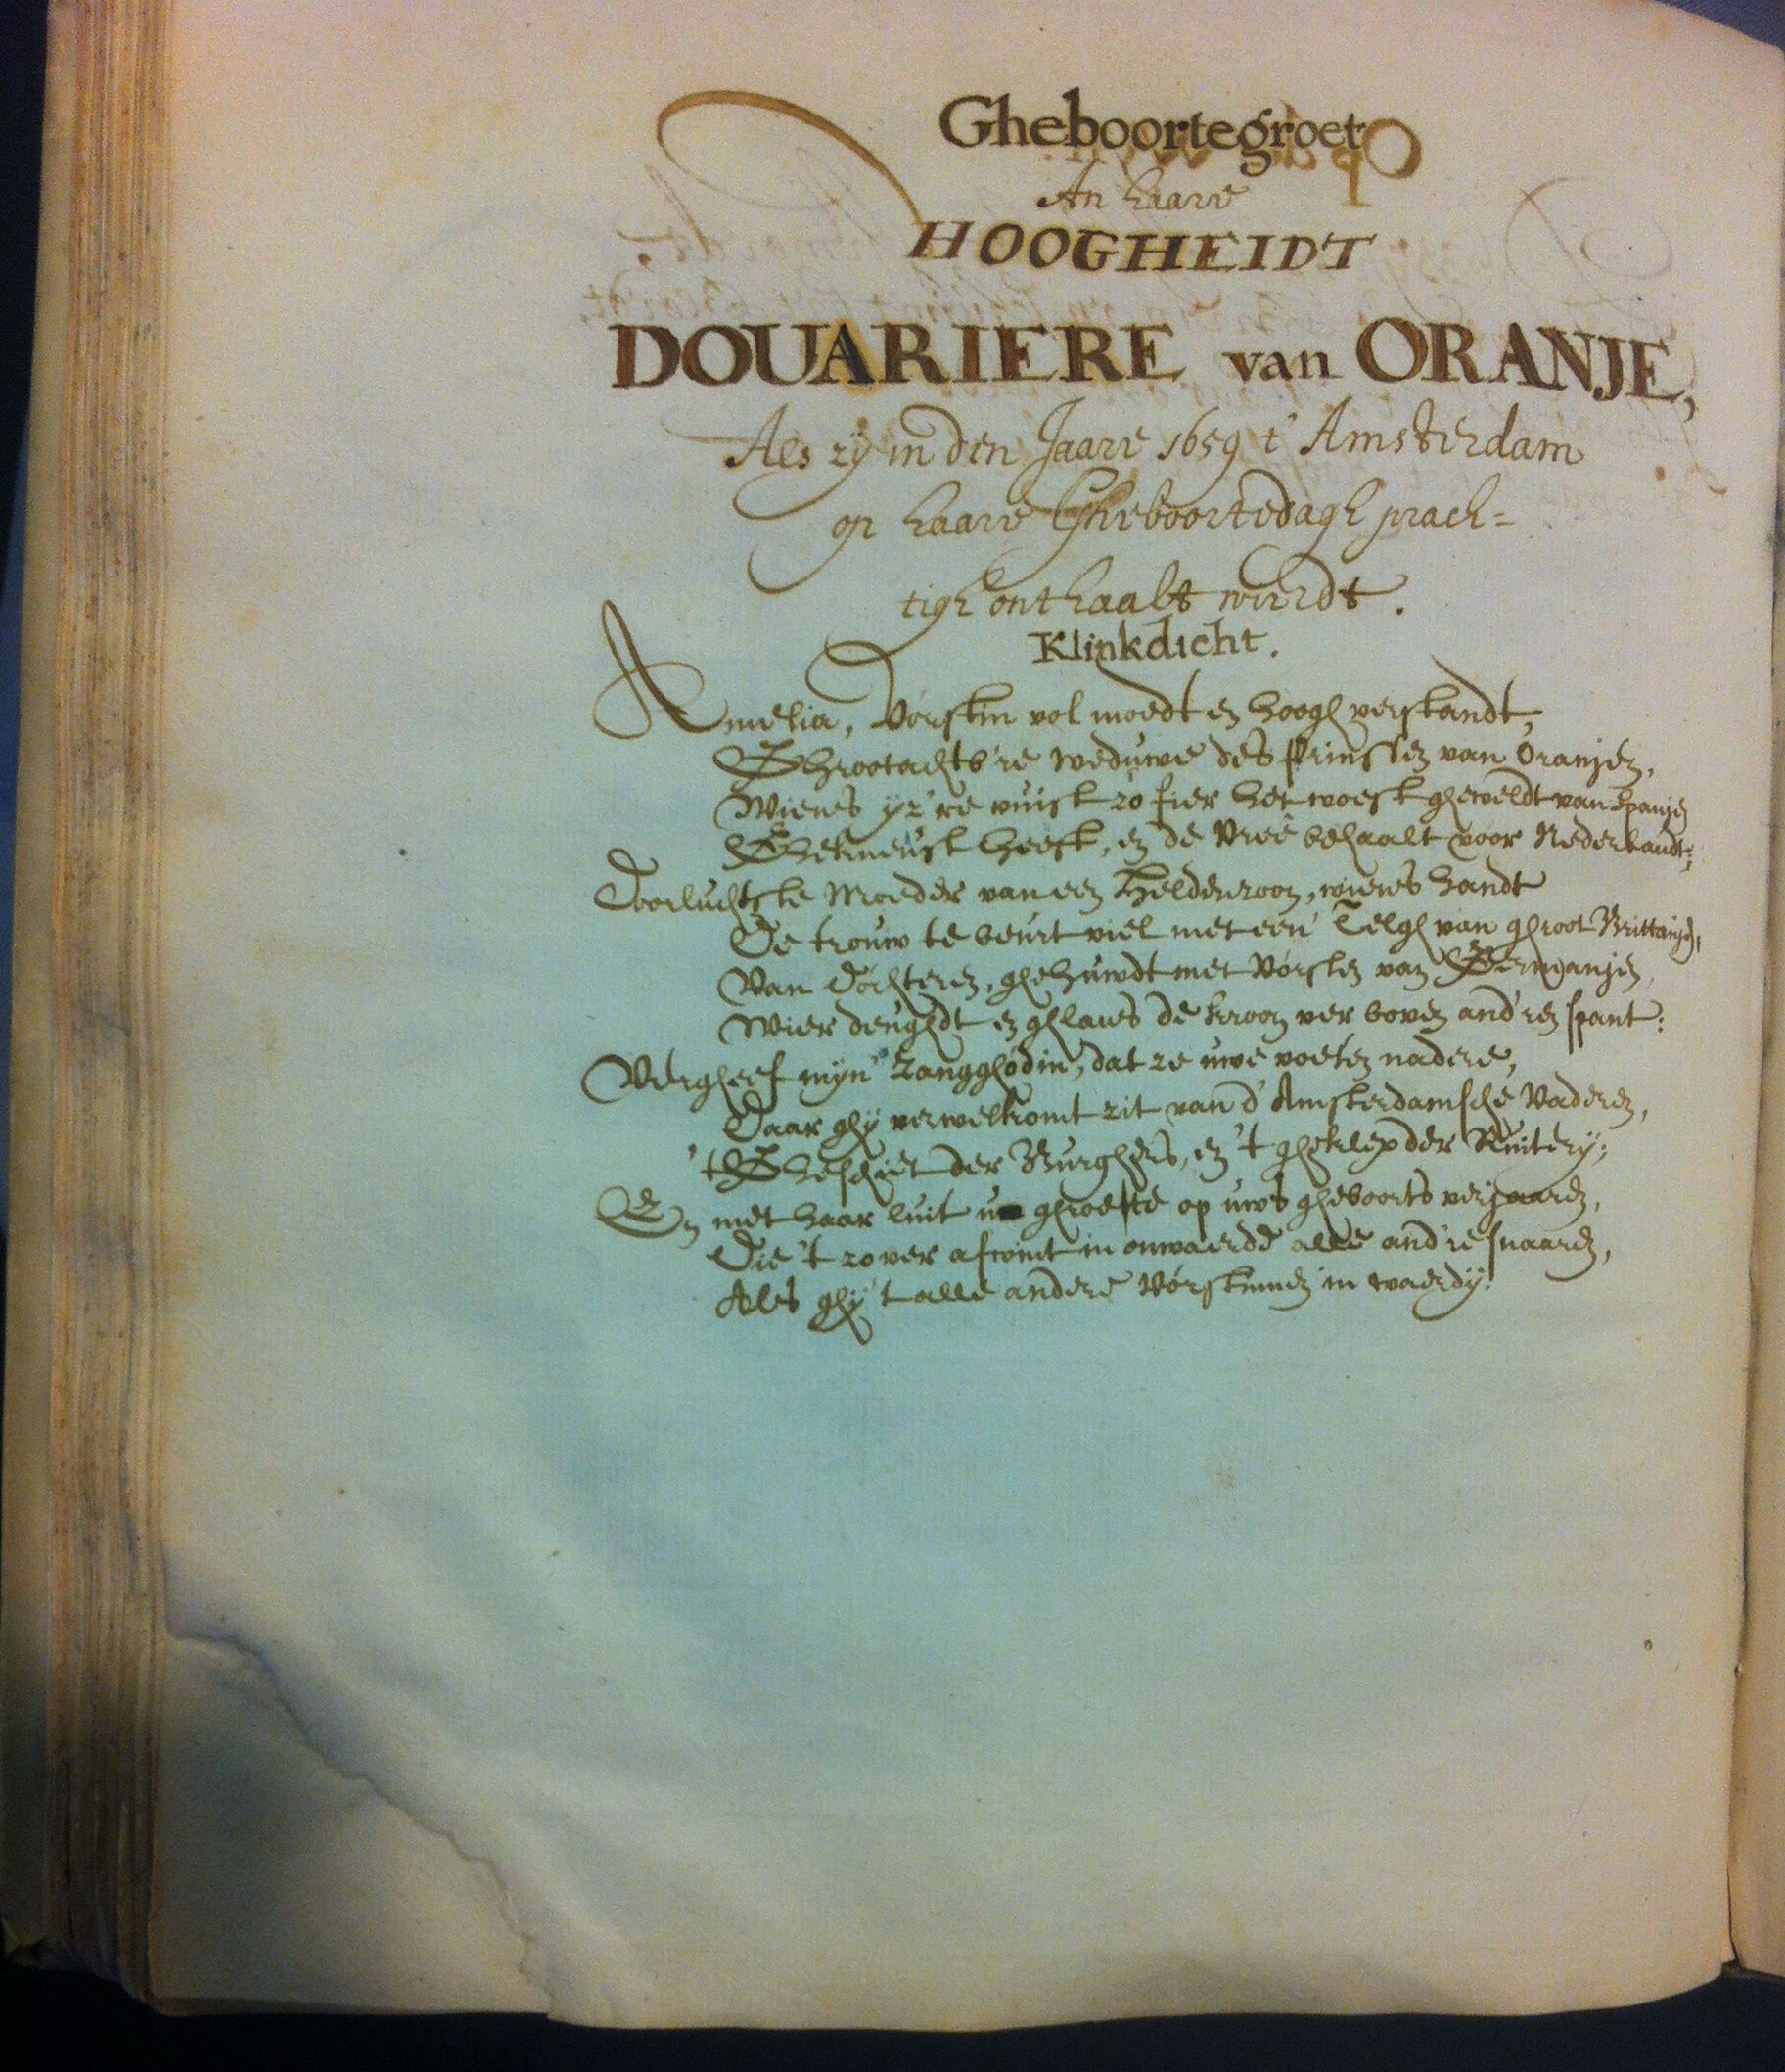 Gheboortegroet
An haare
HOOGHEIDT
DOUARIERE van ORANJE,
Als zy in den Jaare 1659 t' Amsterdam
op haare Gheboortedagh prach=
tigh onthaalt wierdt.
Klinkdicht.
Amelia, Vorstin vol moedt en hoogh verstandt,
Ghrootachtb're weduwe des Prinsen van Oranjen,
Wiens yz're vuist zo fier het woest gheweldt van Spanjen
Ghekneust heeft, en de Vreê behaalt voor Nederlandt;
Doorluchtste Moeder van een Heldenzoon, wiens handt
De trouw te beurt viel met een' Telgh van ghroot Brittanjen,
Van dóchteren, ghehuwdt met Vórsten van Germanjen,
Wier deughdt en ghlans de kroon ver boven and'ren spant:
Vergheef mijn' Zangghódin, dat ze uwe voeten nadere,
Daar ghy verwelkomt zit van d' Amsterdamsche Vaderen,
't Gheschiet der Burghers, en 't gheklep der Ruitery;
En met haar luit u ghroette op uws gheboorts verjaaren,
Die 't zo ver afwint in onwaerdé alle and're snaaren,
Als ghy 't alle andere Vórstinnen in waerdy.